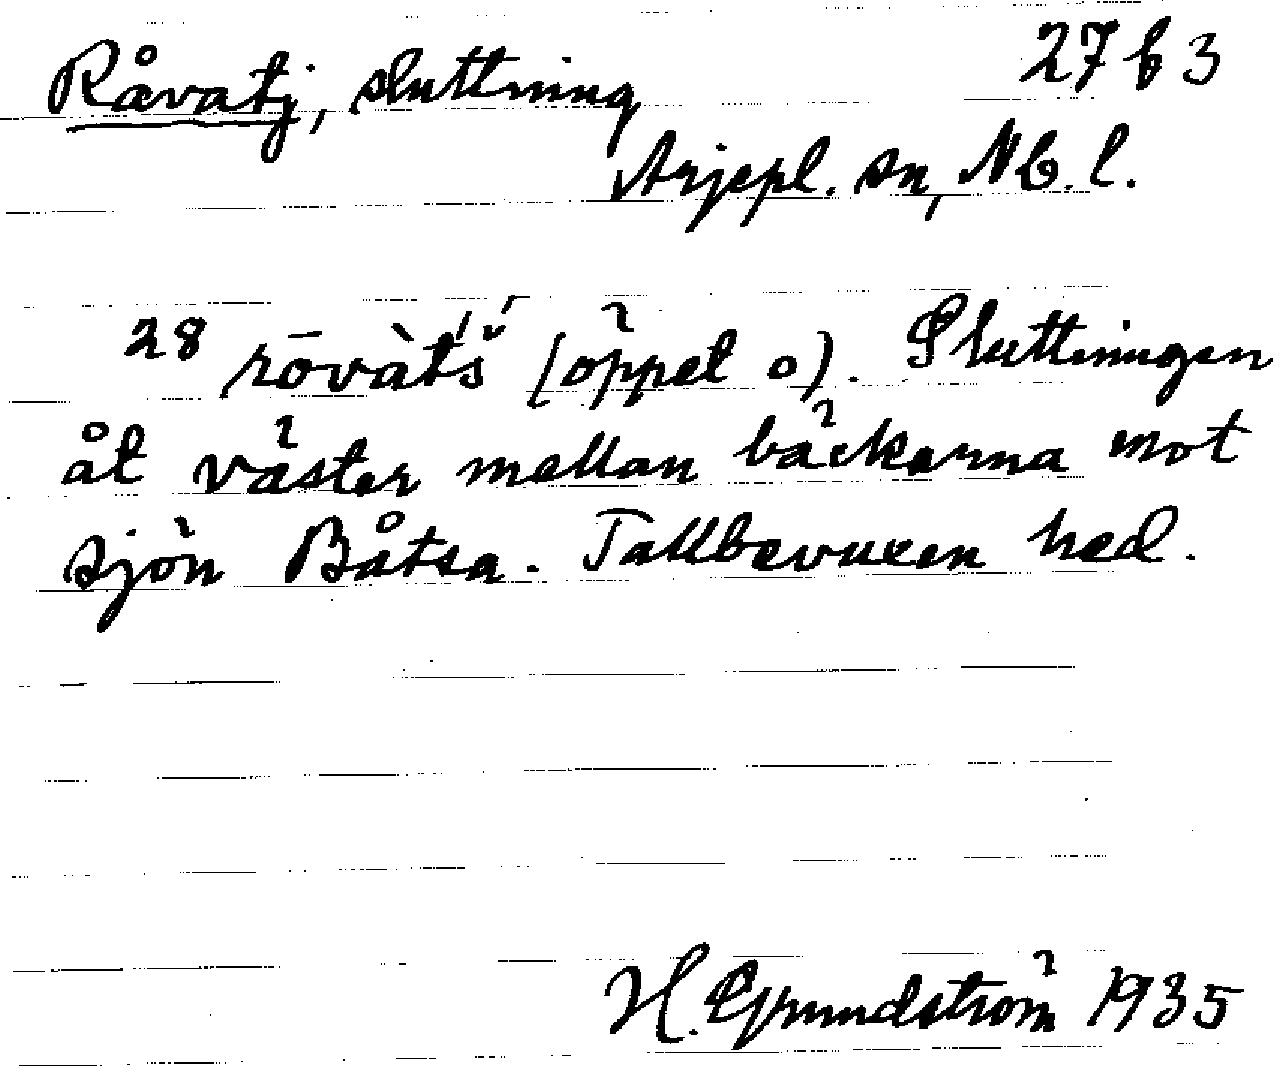 Råvatj, sluttning 27 b 3
Arjepl. sn, Nb. l.
28 rōvàt́š́ (öppet o). Sluttningen
åt väster mellan bäckarna mot
sjön Båtsa. Tallbevuxen hed.
H. Grundström 1935